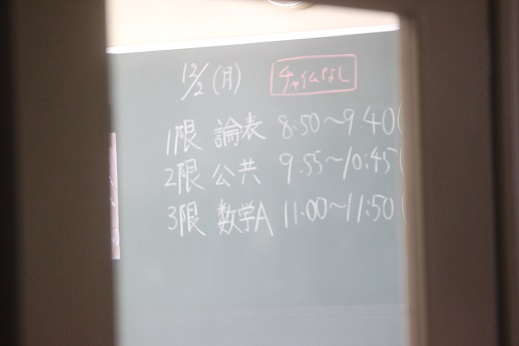 12/2(月) チャイムなし
1限 論表 8:50～9:40(
2限 公共 9:55～10:45(
3限 数学A 11:00～11:50(